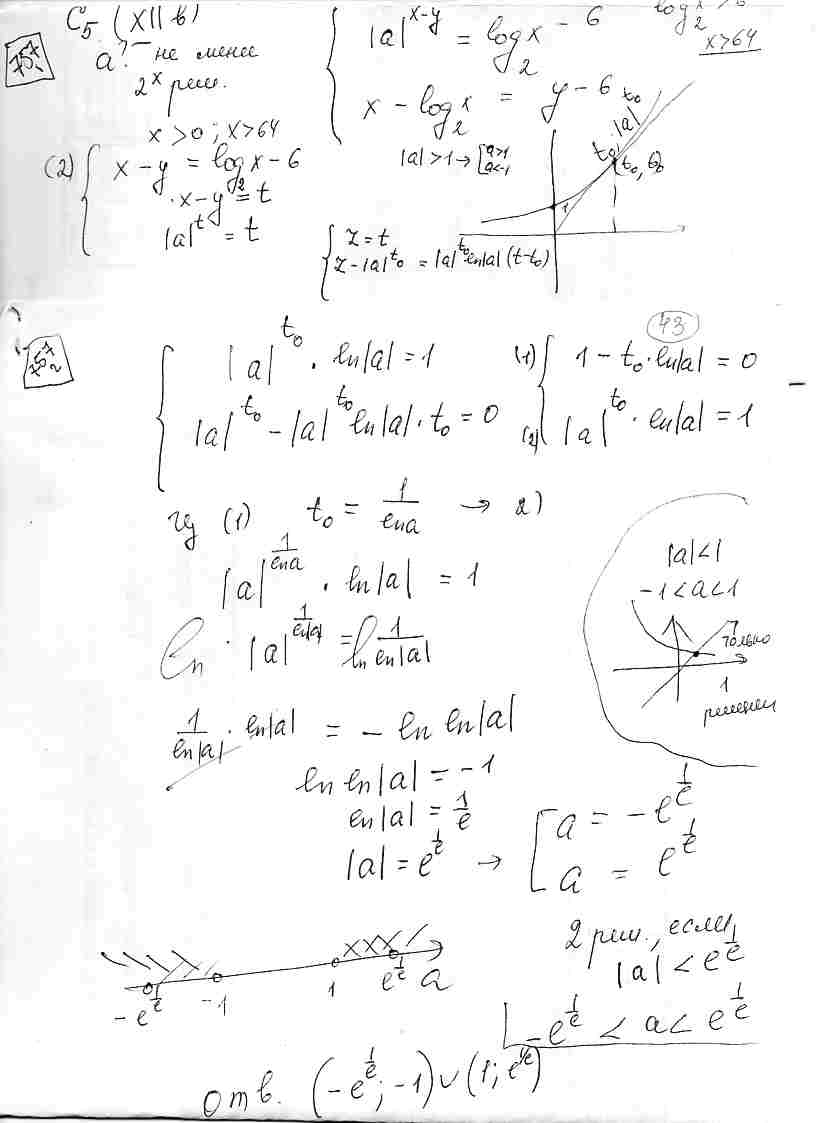 C5 (XII в)
757 1
a? - не менее
2х реш.
|a|^(x-y) = log₂x - 6
x - log₂x = y - 6
x>64
x>0; x>64
|a|>1 → [a>1 a<-1
(2) { x-y = log₂x-6
x-y = t
|a|^t = t
{ z=t
z-|a|^t₀ = |a|^t₀ ln|a| (t-t₀)
1
|a|^t₀
(t₀, t₀)
43
757 2
{ |a|^t₀ · ln|a| = 1
|a|^t₀ - |a|^t₀ ln|a| · t₀ = 0
(1) { 1 - t₀·ln|a| = 0
(2) |a|^t₀ · ln|a| = 1
из (1) t₀ = 1/ln a → 2)
|a|^(1/ln a) · ln|a| = 1
ln |a|^(1/ln|a|) = ln 1/ln|a|
1/ln|a| · ln|a| = - ln ln|a|
ln ln|a| = -1
ln|a| = 1/e
|a| = e^(1/e) → [ a = -e^(1/e)
a = e^(1/e)
|a|<1
-1<a<1
только
1
решение
-e^(1/e) -1 1 e^(1/e) a
2 реш., если
|a| < e^(1/e)
-e^(1/e) < a < e^(1/e)
отв. (-e^(1/e); -1)∪(1; e^(1/e))